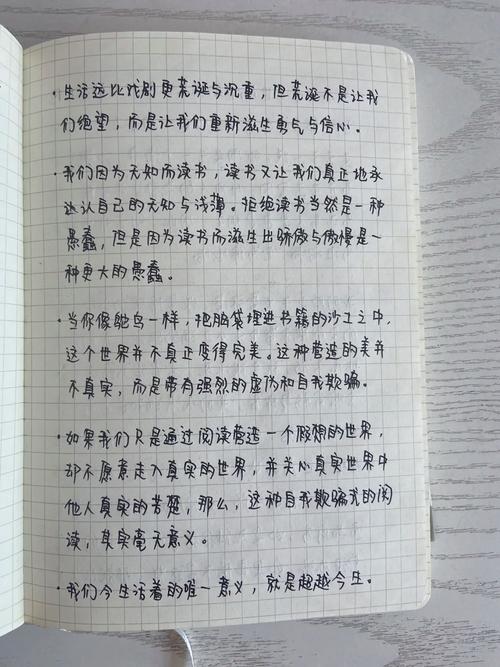 ·生活远比戏剧更荒诞与沉重，但荒诞不是让我
们绝望，而是让我们重新滋生勇气与信心。
·我们因为无知而读书，读书又让我们真正地承
认自己的无知与浅薄。拒绝读书当然是一种
愚蠢，但是因为读书而滋生出骄傲与傲慢是一
种更大的愚蠢。
·当你像鸵鸟一样，把脑袋埋进书籍的沙土之中，
这个世界并不真正变得完美。这种营造的美并
不真实，而是带有强烈的虚伪和自我欺骗。
·如果我们只是通过阅读营造一个假想的世界，
却不愿意走入真实的世界，并关心真实世界中
他人真实的苦楚，那么，这种自我欺骗式的阅
读，其实毫无意义。
·我们今生活着的唯一意义，就是超越今生。